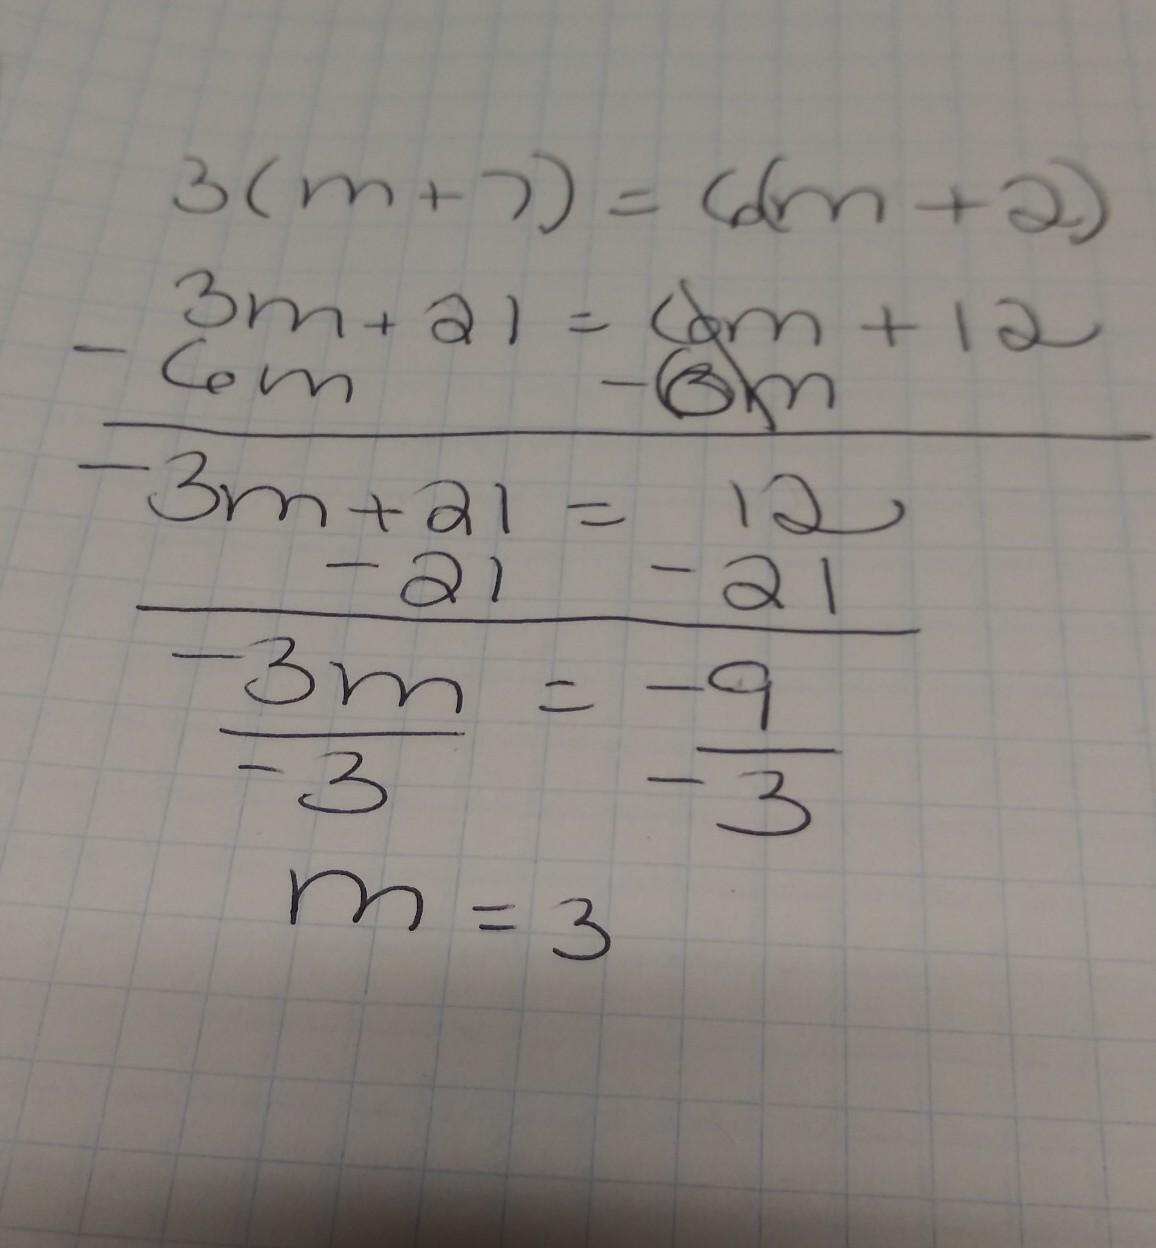 3(m+7) = 6(m+2)
3m+21 = 6m+12
-6m -6m
-3m+21 = 12
-21 -21
-3m = -9
-3 -3
m = 3